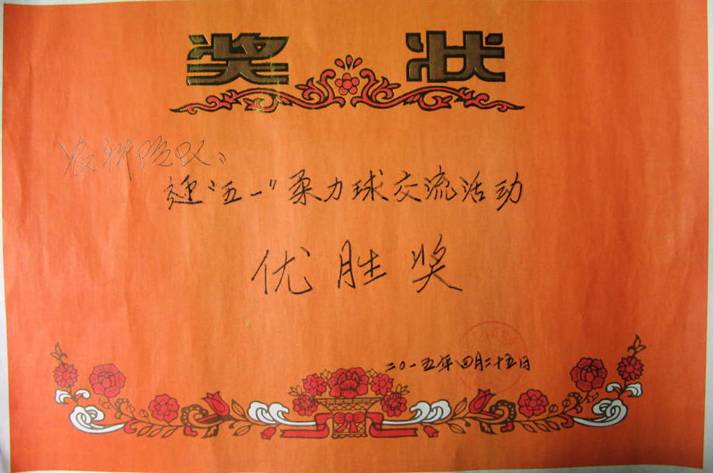 奖状
农科院队:
迎"五一"柔力球交流活动
优胜奖
二〇一五年四月二十五日